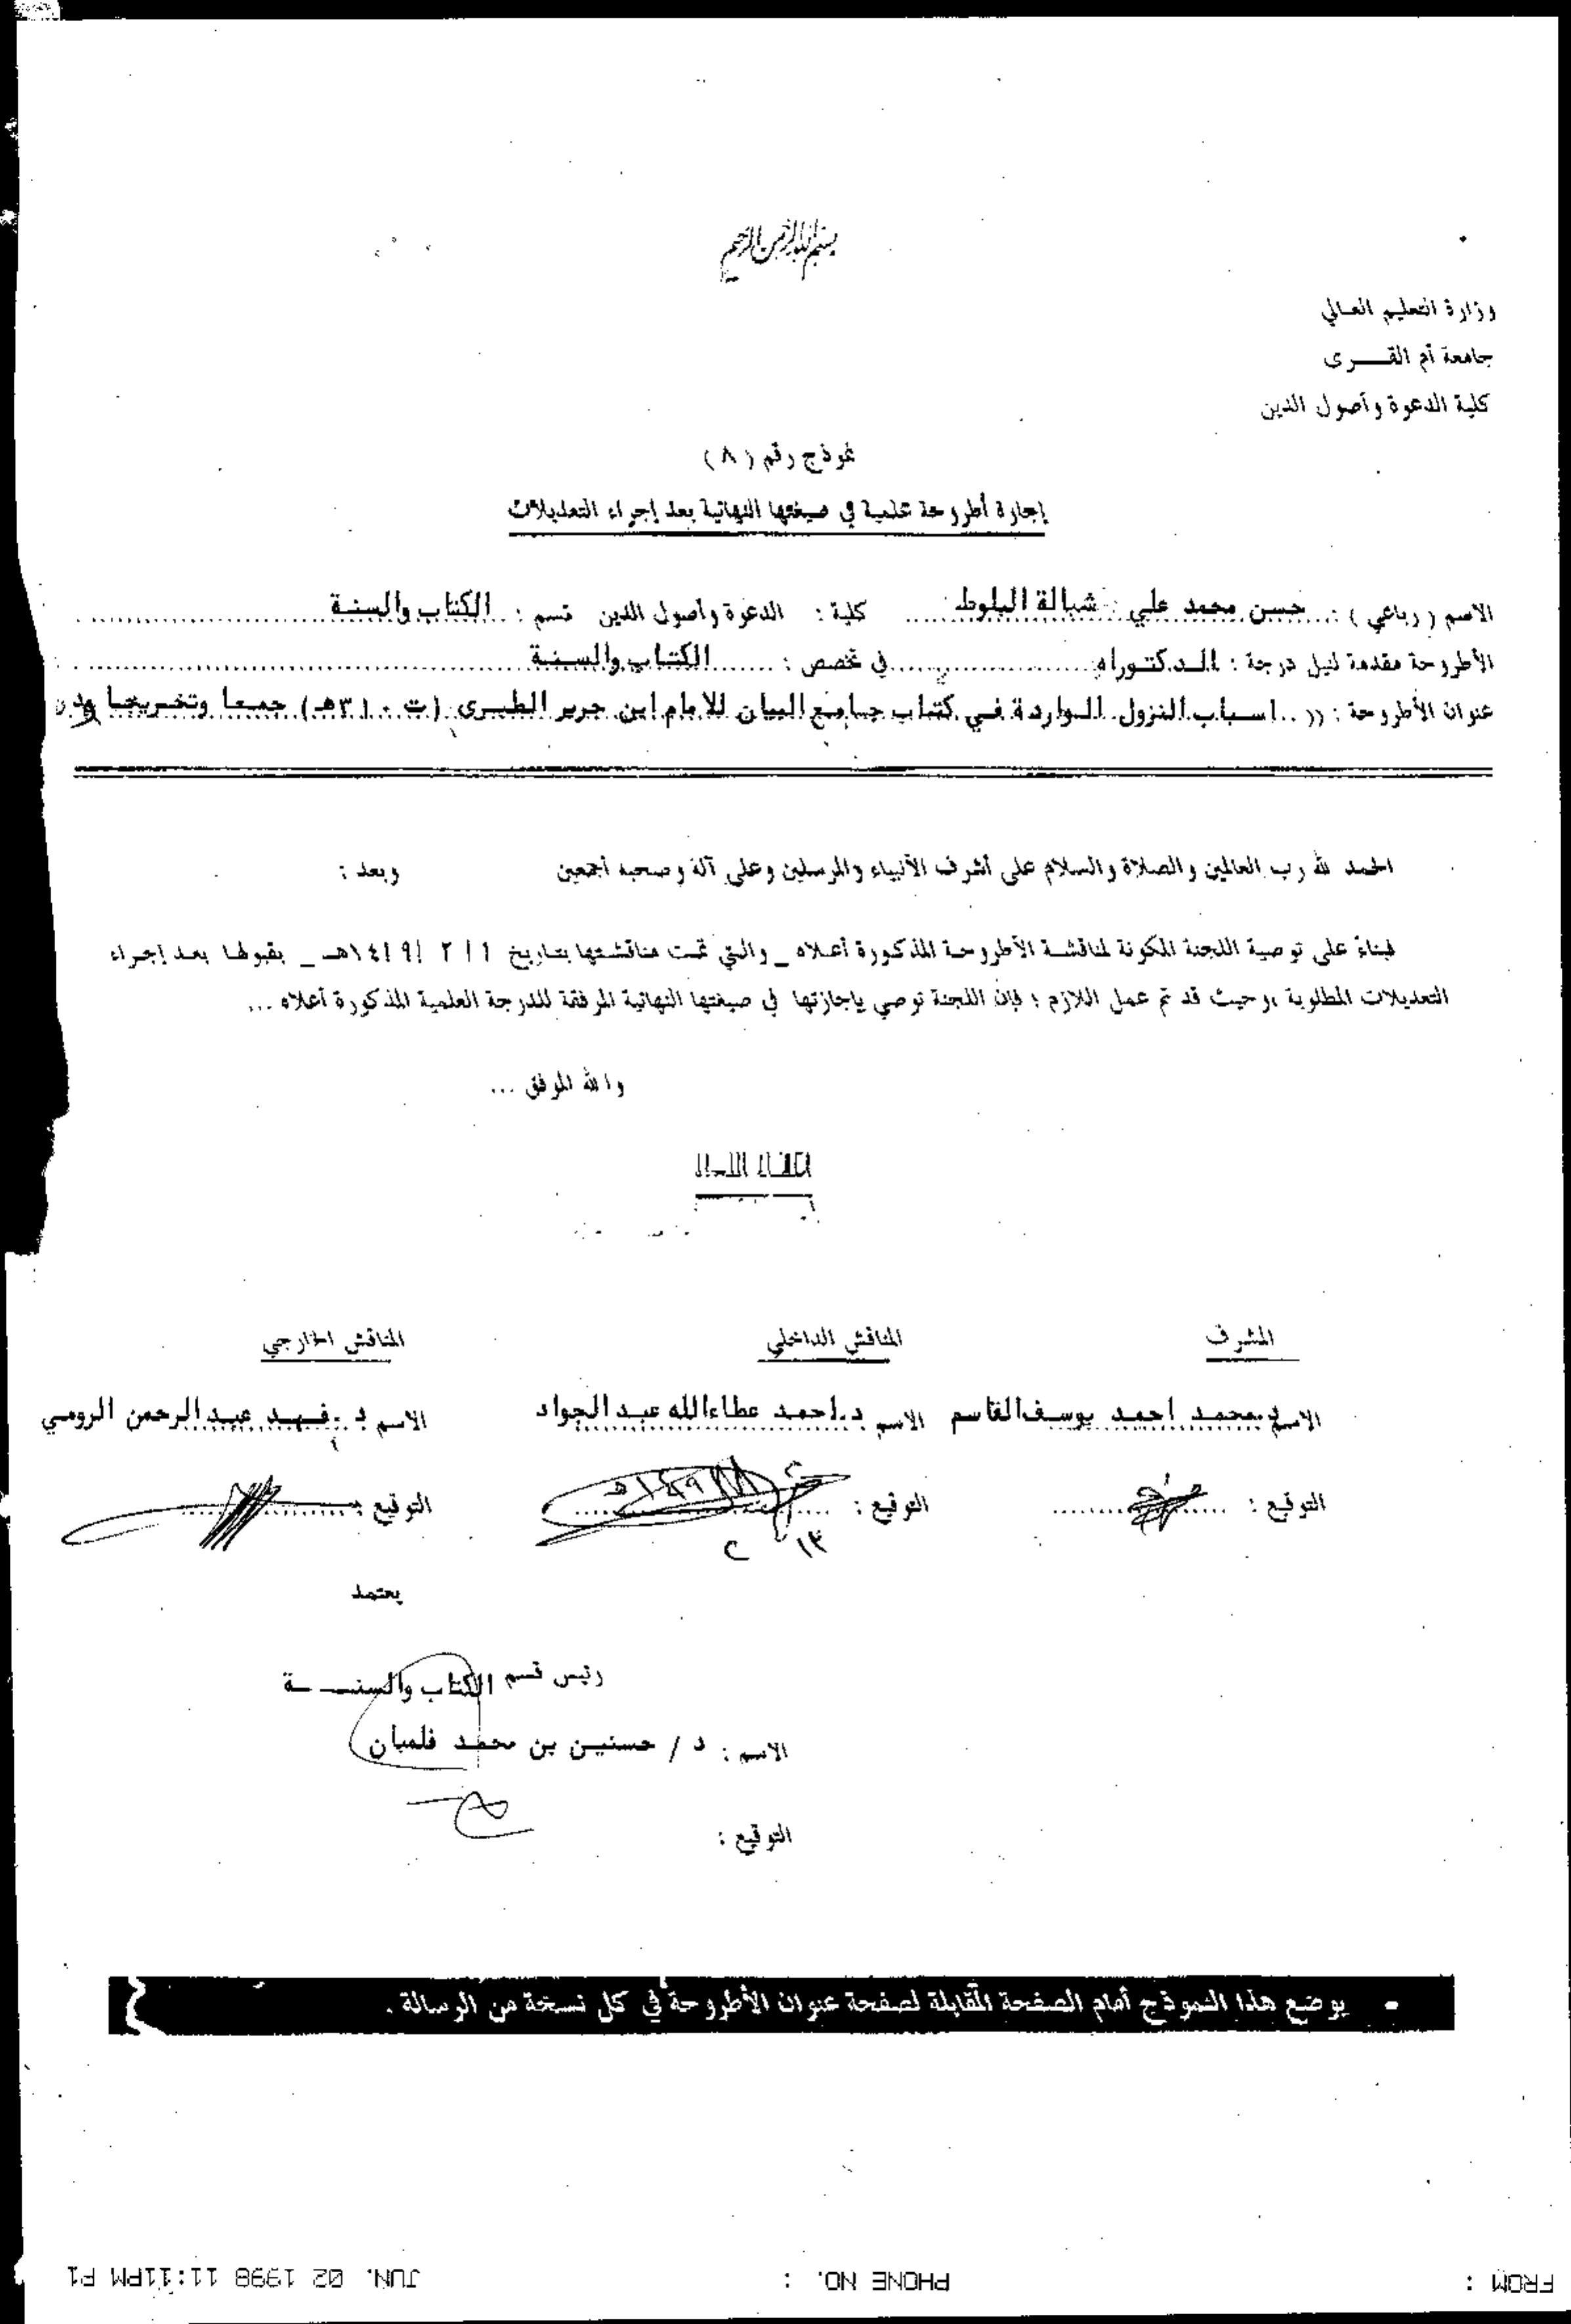 بسم الله الرحمن الرحيم
وزارة التعليم العالي
جامعة أم القـــرى
كلية الدعوة وأصول الدين
نموذج رقم (٨)
إجازة أطروحة علمية في صيغتها النهائية بعد إجراء التعديلات
الاسم (رباعي) : حسن محمد علي شبالة البلوط كلية : الدعوة وأصول الدين قسم : الكتاب والسنة
الأطروحة مقدمة لنيل درجة : الدكتوراه في تخصص : الكتاب والسنة
عنوان الأطروحة : (( اسباب النزول الواردة في كتاب جامع البيان للامام ابن جرير الطبرى (ت ٣١٠هـ) جمعا وتخريجا
الحمد لله رب العالمين والصلاة والسلام على أشرف الأنبياء والمرسلين وعلى آلة وصحبه أجمعين وبعد :
فبناءً على توصية اللجنة المكونة لمناقشة الأطروحة المذكورة أعلاه _ والتي تمت مناقشتها بتاريخ ١ / ٢ / ١٤١٩هـ _ بقبولها بعد إجراء
التعديلات المطلوبة ، وحيث قد تم عمل اللازم ؛ فإن اللجنة توصي بإجازتها في صيغتها النهائية المرفقة للدرجة العلمية المذكورة أعلاه ...
والله الموفق ...
المشرف المناقش الداخلي المناقش الخارجي
الاسم د.محمد احمد يوسف القاسم الاسم د.احمد عطاءالله عبد الجواد الاسم د.فهد عبدالرحمن الرومي
التوقيع : التوقيع : التوقيع :
١٣ ٢
يعتمد
رئيس قسم الكتاب والسنــة
الاسم : د / حسنين بن محمد فلمبان
التوقيع :
- يوضع هذا النموذج أمام الصفحة المقابلة لصفحة عنوان الأطروحة في كل نسخة من الرسالة .
FROM : PHONE NO. : JUN. 02 1998 11:11PM P1